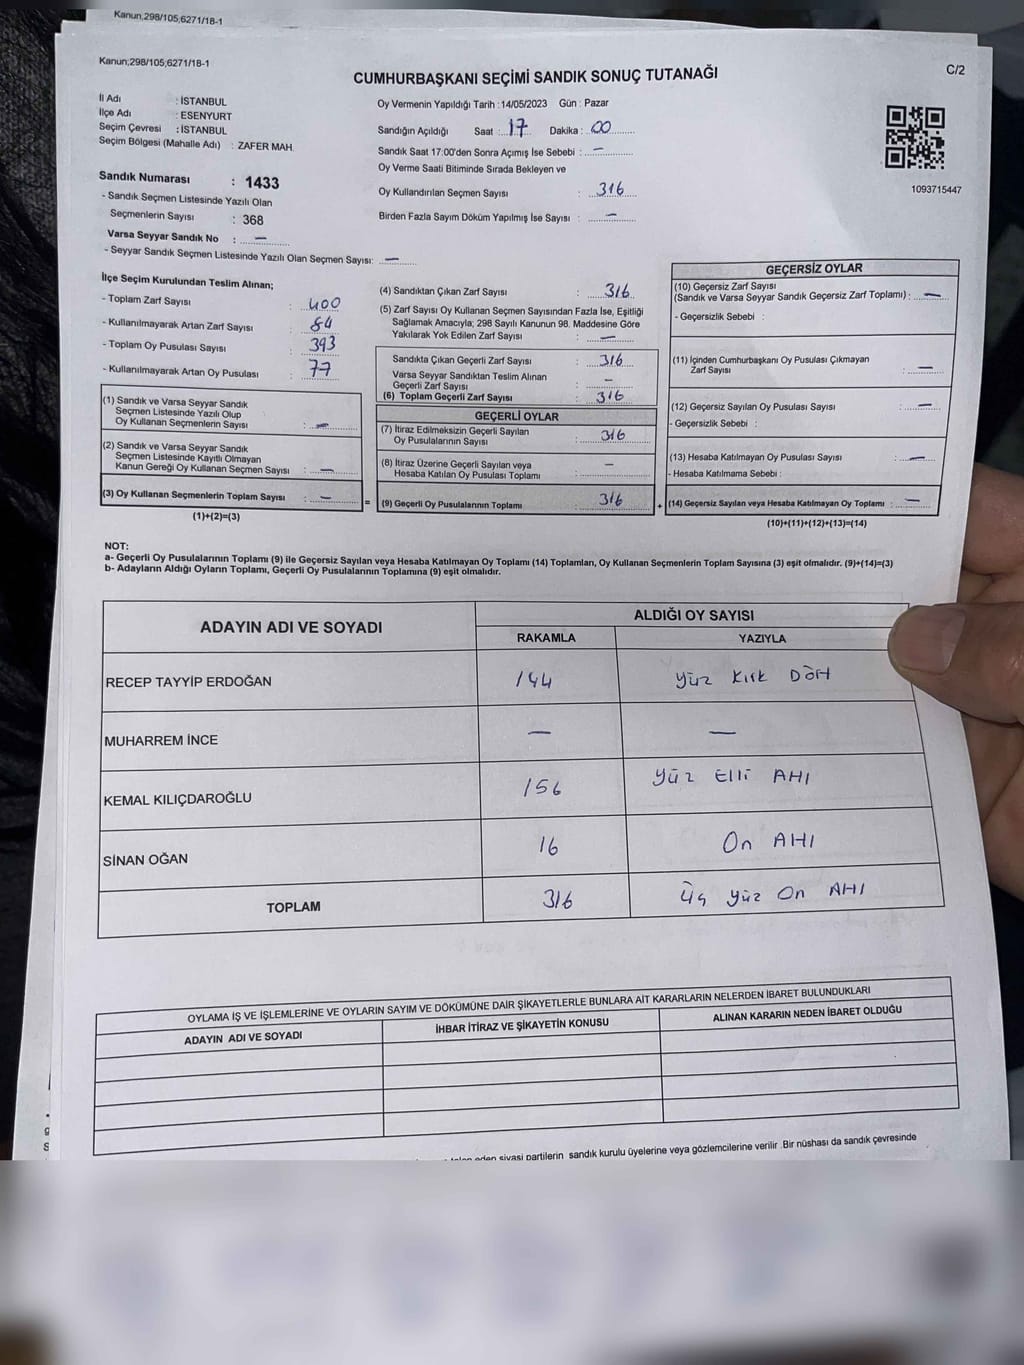 Kanun;298/105;6271/18-1
Kanun;298/105;6271/18-1
C/2
CUMHURBAŞKANI SEÇİMİ SANDIK SONUÇ TUTANAĞI
İl Adı : İSTANBUL
İlçe Adı : ESENYURT
Seçim Çevresi : İSTANBUL
Seçim Bölgesi (Mahalle Adı) : ZAFER MAH.
Sandık Numarası : 1433
- Sandık Seçmen Listesinde Yazılı Olan
Seçmenlerin Sayısı : 368
Varsa Seyyar Sandık No : —
- Seyyar Sandık Seçmen Listesinde Yazılı Olan Seçmen Sayısı: —
Oy Vermenin Yapıldığı Tarih : 14/05/2023 Gün : Pazar
Sandığın Açıldığı Saat : 17 Dakika : 00
Sandık Saat 17:00'den Sonra Açımış İse Sebebi : —
Oy Verme Saati Bitiminde Sırada Bekleyen ve
Oy Kullandırılan Seçmen Sayısı : 316
Birden Fazla Sayım Döküm Yapılmış İse Sayısı : —
1093715447
İlçe Seçim Kurulundan Teslim Alınan;
- Toplam Zarf Sayısı : 400
- Kullanılmayarak Artan Zarf Sayısı : 84
- Toplam Oy Pusulası Sayısı : 393
- Kullanılmayarak Artan Oy Pusulası : 77
(1) Sandık ve Varsa Seyyar Sandık
Seçmen Listesinde Yazılı Olup
Oy Kullanan Seçmenlerin Sayısı : —
(2) Sandık ve Varsa Seyyar Sandık
Seçmen Listesinde Kayıtlı Olmayan
Kanun Gereği Oy Kullanan Seçmen Sayısı : —
(3) Oy Kullanan Seçmenlerin Toplam Sayısı : —
(1)+(2)=(3)
=
(4) Sandıktan Çıkan Zarf Sayısı : 316
(5) Zarf Sayısı Oy Kullanan Seçmen Sayısından Fazla İse, Eşitliği
Sağlamak Amacıyla; 298 Sayılı Kanunun 98. Maddesine Göre
Yakılarak Yok Edilen Zarf Sayısı : —
Sandıkta Çıkan Geçerli Zarf Sayısı : 316
Varsa Seyyar Sandıktan Teslim Alınan
Geçerli Zarf Sayısı : —
(6) Toplam Geçerli Zarf Sayısı : 316
GEÇERLİ OYLAR
(7) İtiraz Edilmeksizin Geçerli Sayılan
Oy Pusulalarının Sayısı : 316
(8) İtiraz Üzerine Geçerli Sayılan veya
Hesaba Katılan Oy Pusulası Toplamı : —
(9) Geçerli Oy Pusulalarının Toplamı : 316
+
GEÇERSİZ OYLAR
(10) Geçersiz Zarf Sayısı
(Sandık ve Varsa Seyyar Sandık Geçersiz Zarf Toplamı) : —
- Geçersizlik Sebebi :
(11) İçinden Cumhurbaşkanı Oy Pusulası Çıkmayan
Zarf Sayısı : —
(12) Geçersiz Sayılan Oy Pusulası Sayısı : —
- Geçersizlik Sebebi :
(13) Hesaba Katılmayan Oy Pusulası Sayısı : —
- Hesaba Katılmama Sebebi :
(14) Geçersiz Sayılan veya Hesaba Katılmayan Oy Toplamı : —
(10)+(11)+(12)+(13)=(14)
NOT:
a- Geçerli Oy Pusulalarının Toplamı (9) ile Geçersiz Sayılan veya Hesaba Katılmayan Oy Toplamı (14) Toplamları, Oy Kullanan Seçmenlerin Toplam Sayısına (3) eşit olmalıdır. (9)+(14)=(3)
b- Adayların Aldığı Oyların Toplamı, Geçerli Oy Pusulalarının Toplamına (9) eşit olmalıdır.
ADAYIN ADI VE SOYADI
ALDIĞI OY SAYISI
RAKAMLA YAZIYLA
RECEP TAYYİP ERDOĞAN 144 Yüz Kırk Dört
MUHARREM İNCE — —
KEMAL KILIÇDAROĞLU 156 Yüz Elli Altı
SİNAN OĞAN 16 On Altı
TOPLAM 316 Üç Yüz On Altı
OYLAMA İŞ VE İŞLEMLERİNE VE OYLARIN SAYIM VE DÖKÜMÜNE DAİR ŞİKAYETLERLE BUNLARA AİT KARARLARIN NELERDEN İBARET BULUNDUKLARI
ADAYIN ADI VE SOYADI İHBAR İTİRAZ VE ŞİKAYETİN KONUSU ALINAN KARARIN NEDEN İBARET OLDUĞU
eden siyasi partilerin sandık kurulu üyelerine veya gözlemcilerine verilir .Bir nüshası da sandık çevresinde